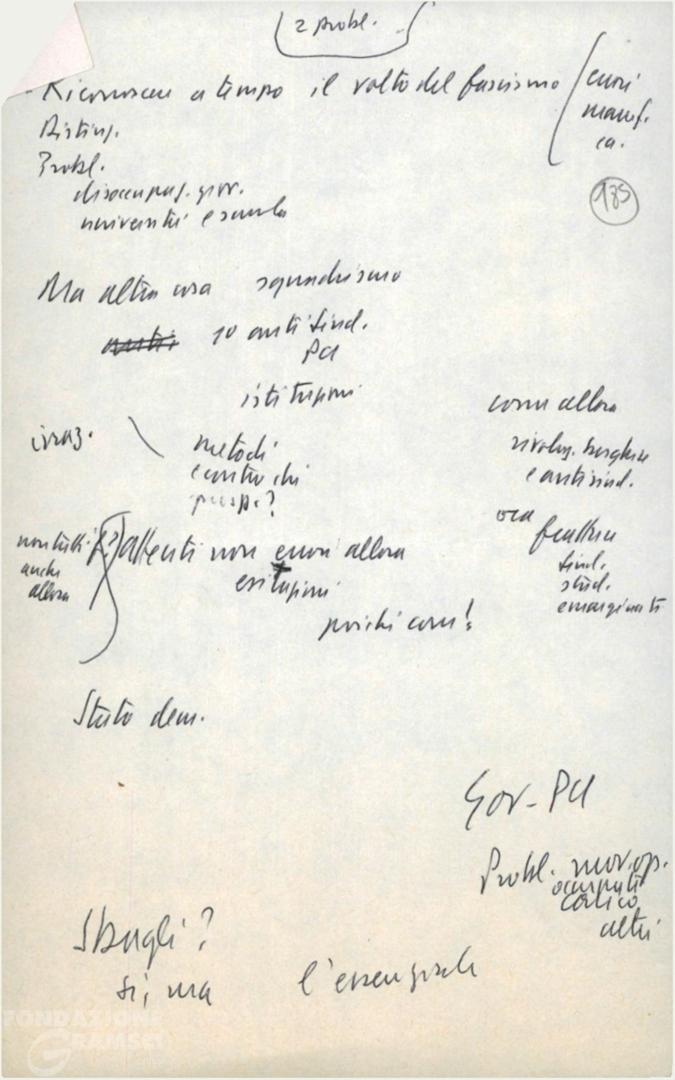 2 probl.
Riconoscere a tempo il volto del fascismo
errori
manif.
ca.
Disting.
Probl.
disoccupaz. giov.
università e scuola
185
Ma altra cosa squadrismo
anti
10 anti Sind.
PCI
istituzioni
come allora
irraz.
metodi
contro chi
prosp.?
rivoluz. borghese
e antisind.
ora
frattura
sind.
stud.
emarginati
non tutti
anche
allora
(?) attenti non errori allora
esitazioni
poiché com!
Stato dem.
Gov - PCI
Probl. mov. op.
occupati
carico
altri
Sbagli?
Sì, ma l'essenziale
FONDAZIONE
GRAMSCI